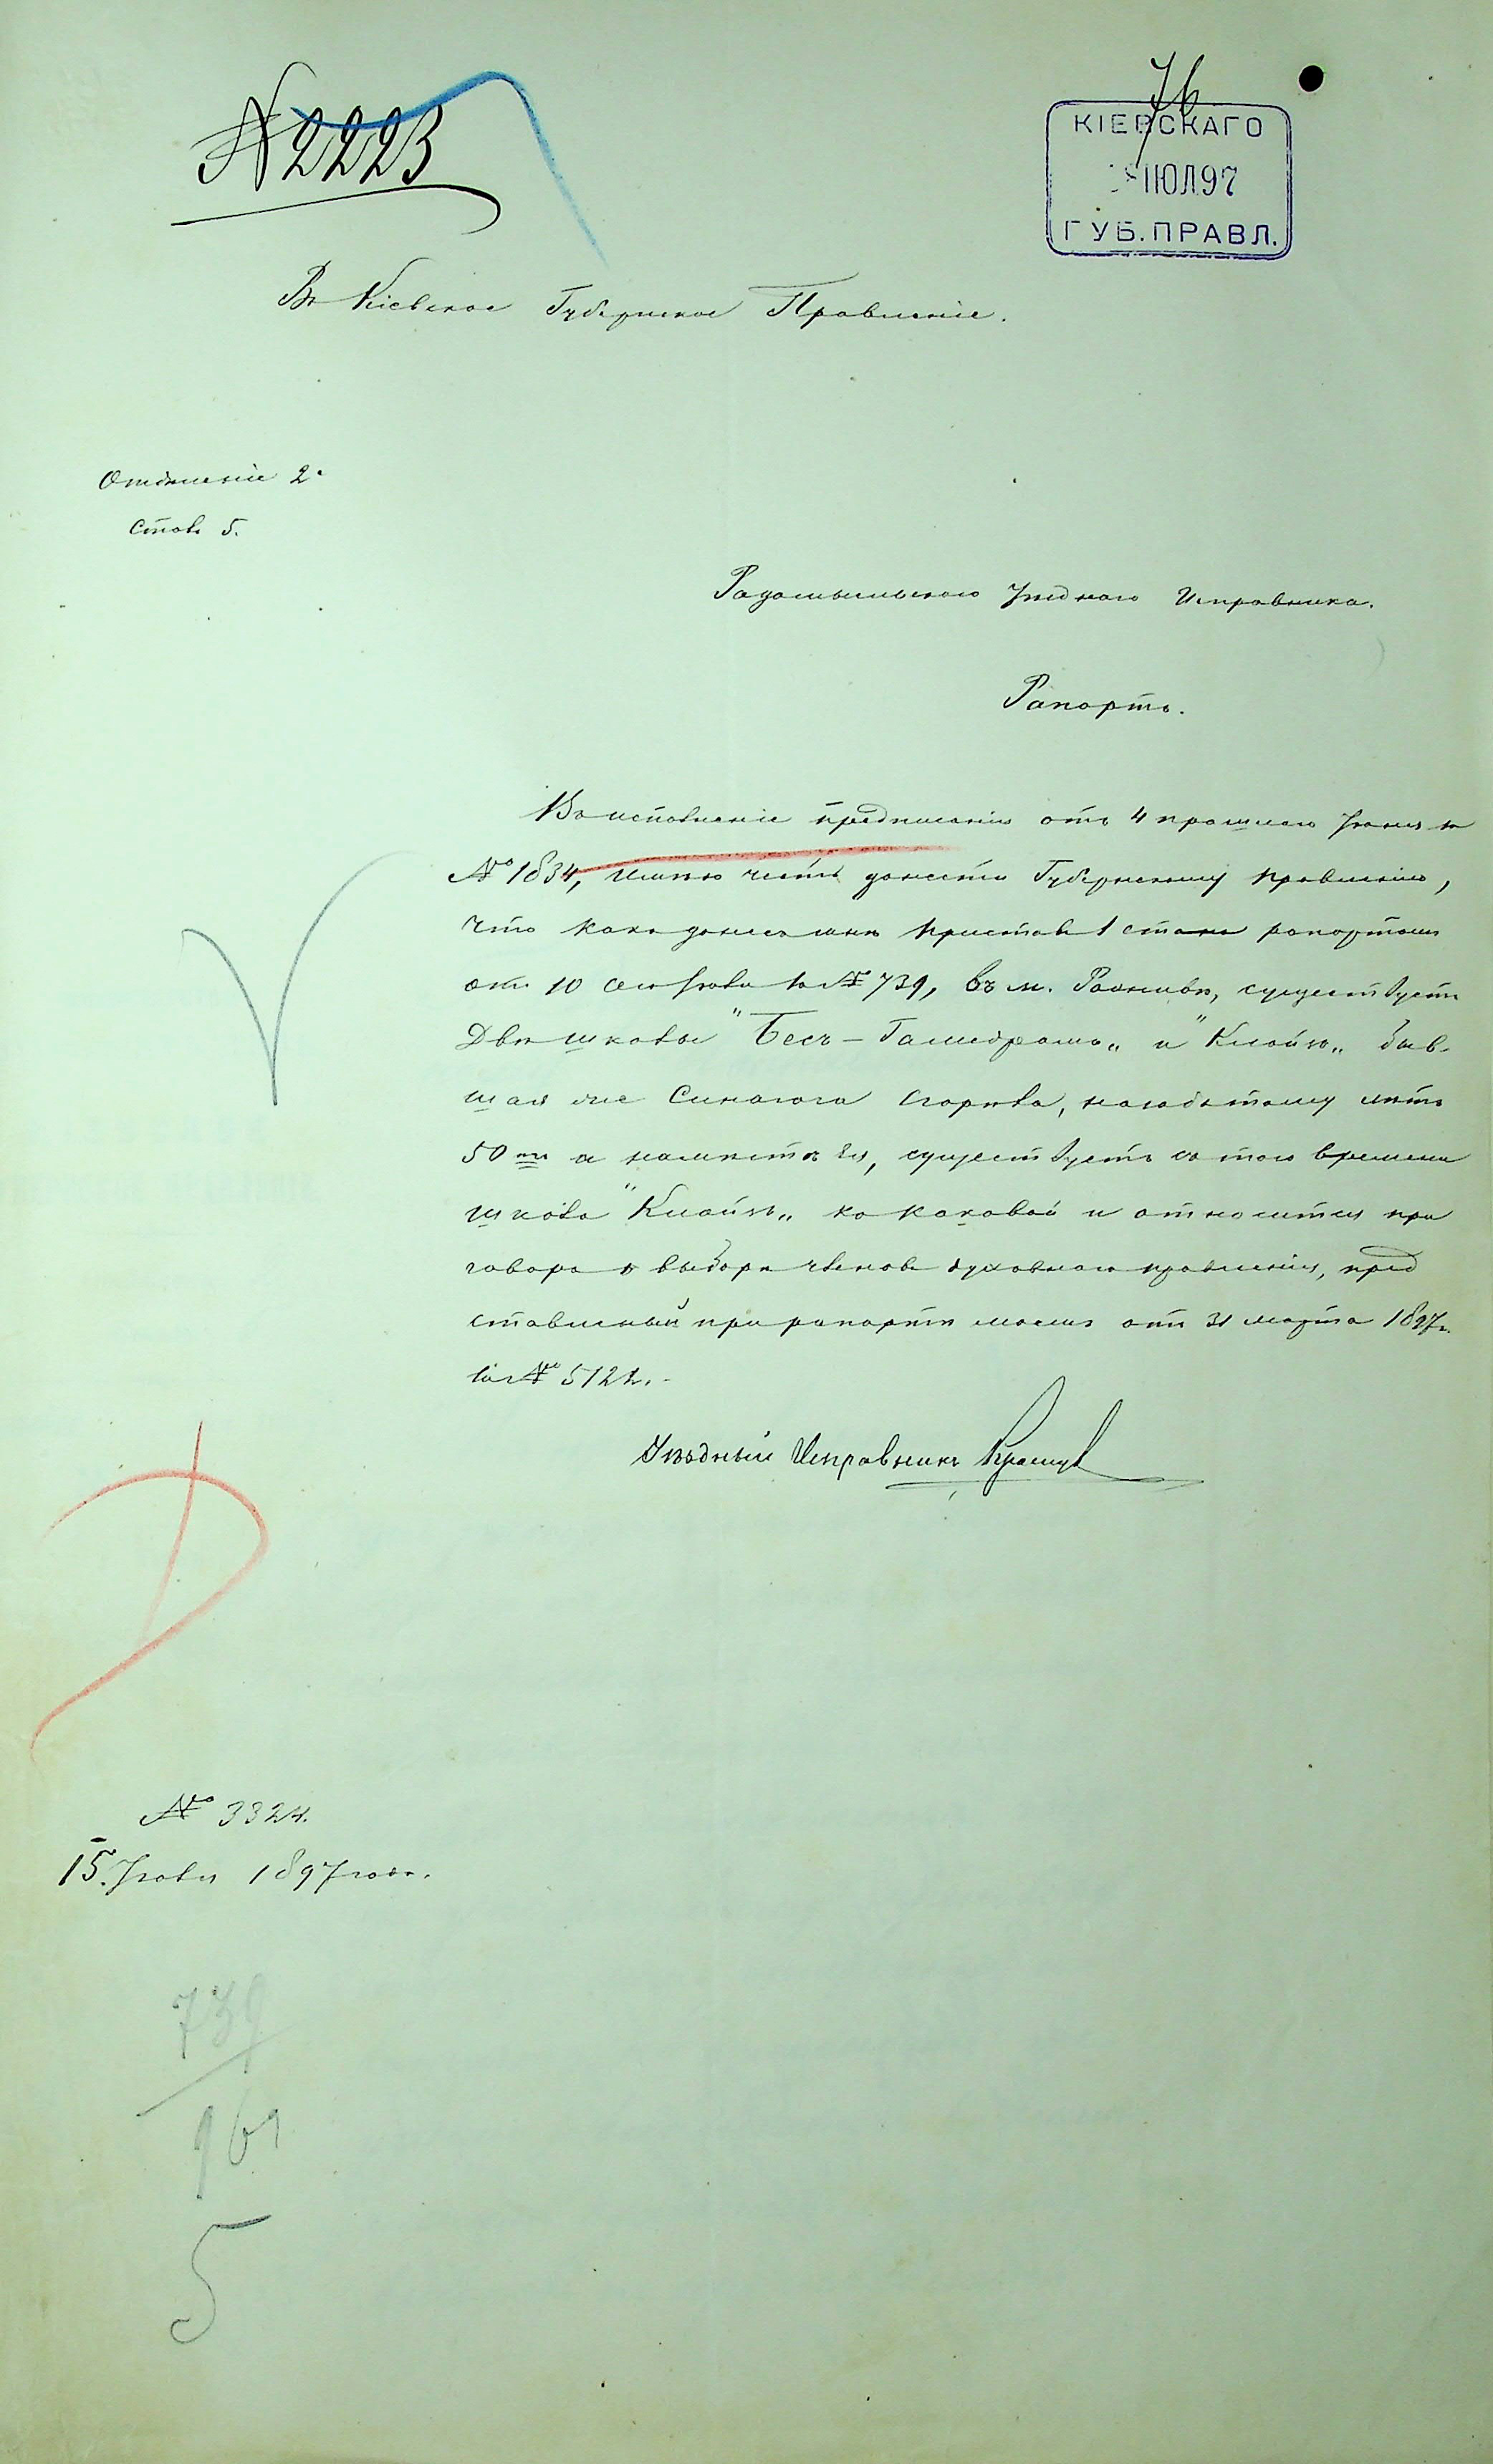 76
№ 2223
КІЕВСКАГО
ІЮЛ97
ГУБ.ПРАВЛ.
Въ Кіевское Губернское Правленіе.
Отдѣленіе 2е
Столъ 5.
Радомысльскаго Уѣзднаго Исправника.
Рапортъ.
Во исполненіе предписанія отъ 4 прошлаго Іюня за
№ 1834, имѣю честь донести Губернскому Правленію,
что какъ донесъ мнѣ Приставъ 1 стана рапортомъ
отъ 10 сего Іюля за № 739, въ м. существуетъ
Двѣ школы "Бесъ-Гамедрашъ" и "Клойзъ" быв-
шая же Синагога сгорѣла, назадъ тому лѣтъ
50ть а на мѣстѣ ея, существуетъ съ того времени
школа "Клойзъ" къ каковой и относится при
говоръ о выборѣ членовъ духовнаго правленія, пред
ставленный при рапортѣ моемъ отъ 31 марта 1897г.
за № 5122.
Уѣздный Исправникъ
№ 3324.
15 Іюля 1897 года.
739
969
5